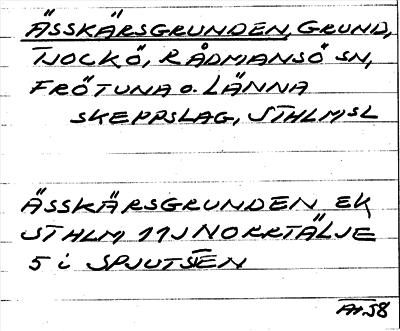 ÄSSKÄRSGRUNDEN, GRUND,
TJOCKÖ, RÅDMANSÖ SN,
FRÖTUNA O. LÄNNA
SKEPPSLAG, STHLM,SL
ÄSSKÄRSGRUNDEN EK
STHLM 11J NORRTÄLJE
5 i SPJUTSTEN